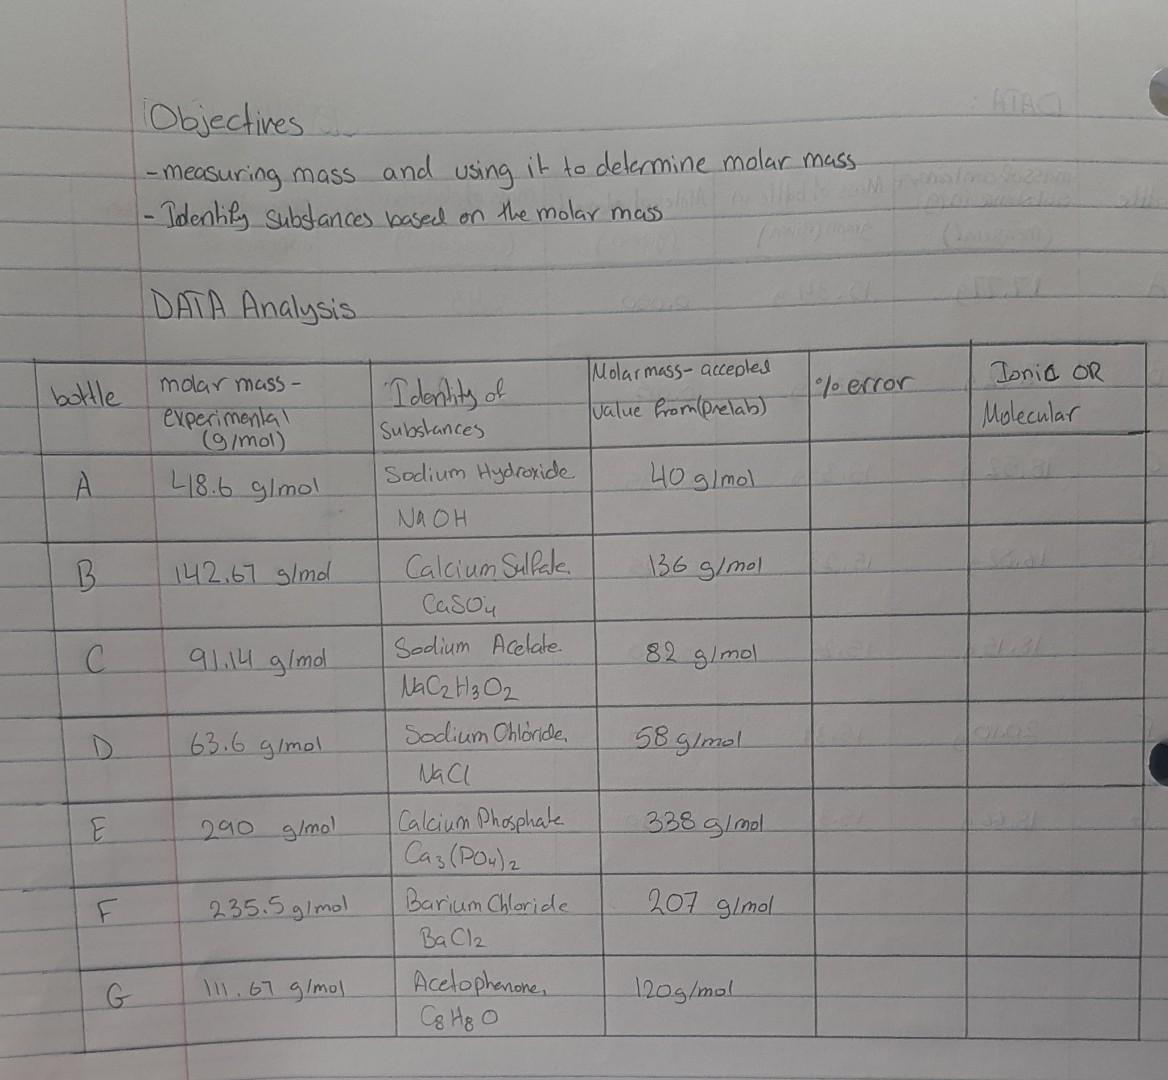 Objectives
- measuring mass and using it to determine molar mass
- Identify Substances based on the molar mass
DATA Analysis
bottle
molar mass -
experimental
(g/mol)
Identity of
Substances
Molar mass - accepted
value from (prelab)
% error
Ionic OR
Molecular
A
48.6 g/mol
Sodium Hydroxide
NaOH
40 g/mol
B
142.67 g/mol
Calcium Sulfate.
CaSO4
136 g/mol
C
91.14 g/mol
Sodium Acetate
NaC2H3O2
82 g/mol
D
63.6 g/mol
Sodium Chloride,
NaCl
58 g/mol
E
290 g/mol
Calcium Phosphate
Ca3(PO4)2
338 g/mol
F
235.5 g/mol
Barium Chloride
BaCl2
207 g/mol
G
111.67 g/mol
Acetophenone,
C8H8O
120 g/mol